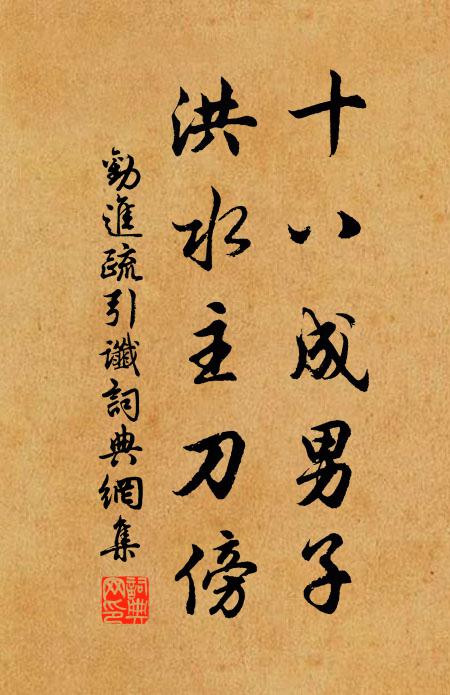 十八成男子
洪水主刀傍
勸進疏引讖詞典網集
詞典网印